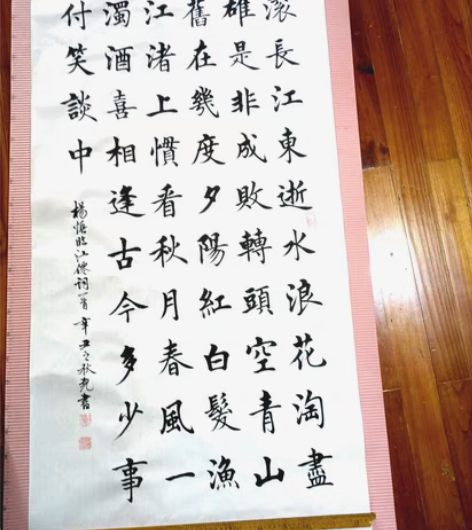 滾長江東逝水浪花淘盡
雄是非成敗轉頭空青山
舊在幾度夕陽紅白髮漁
江渚上慣看秋月春風一
濁酒喜相逢古今多少事
付笑談中
楊慎臨江僊詞一首辛丑之秋書